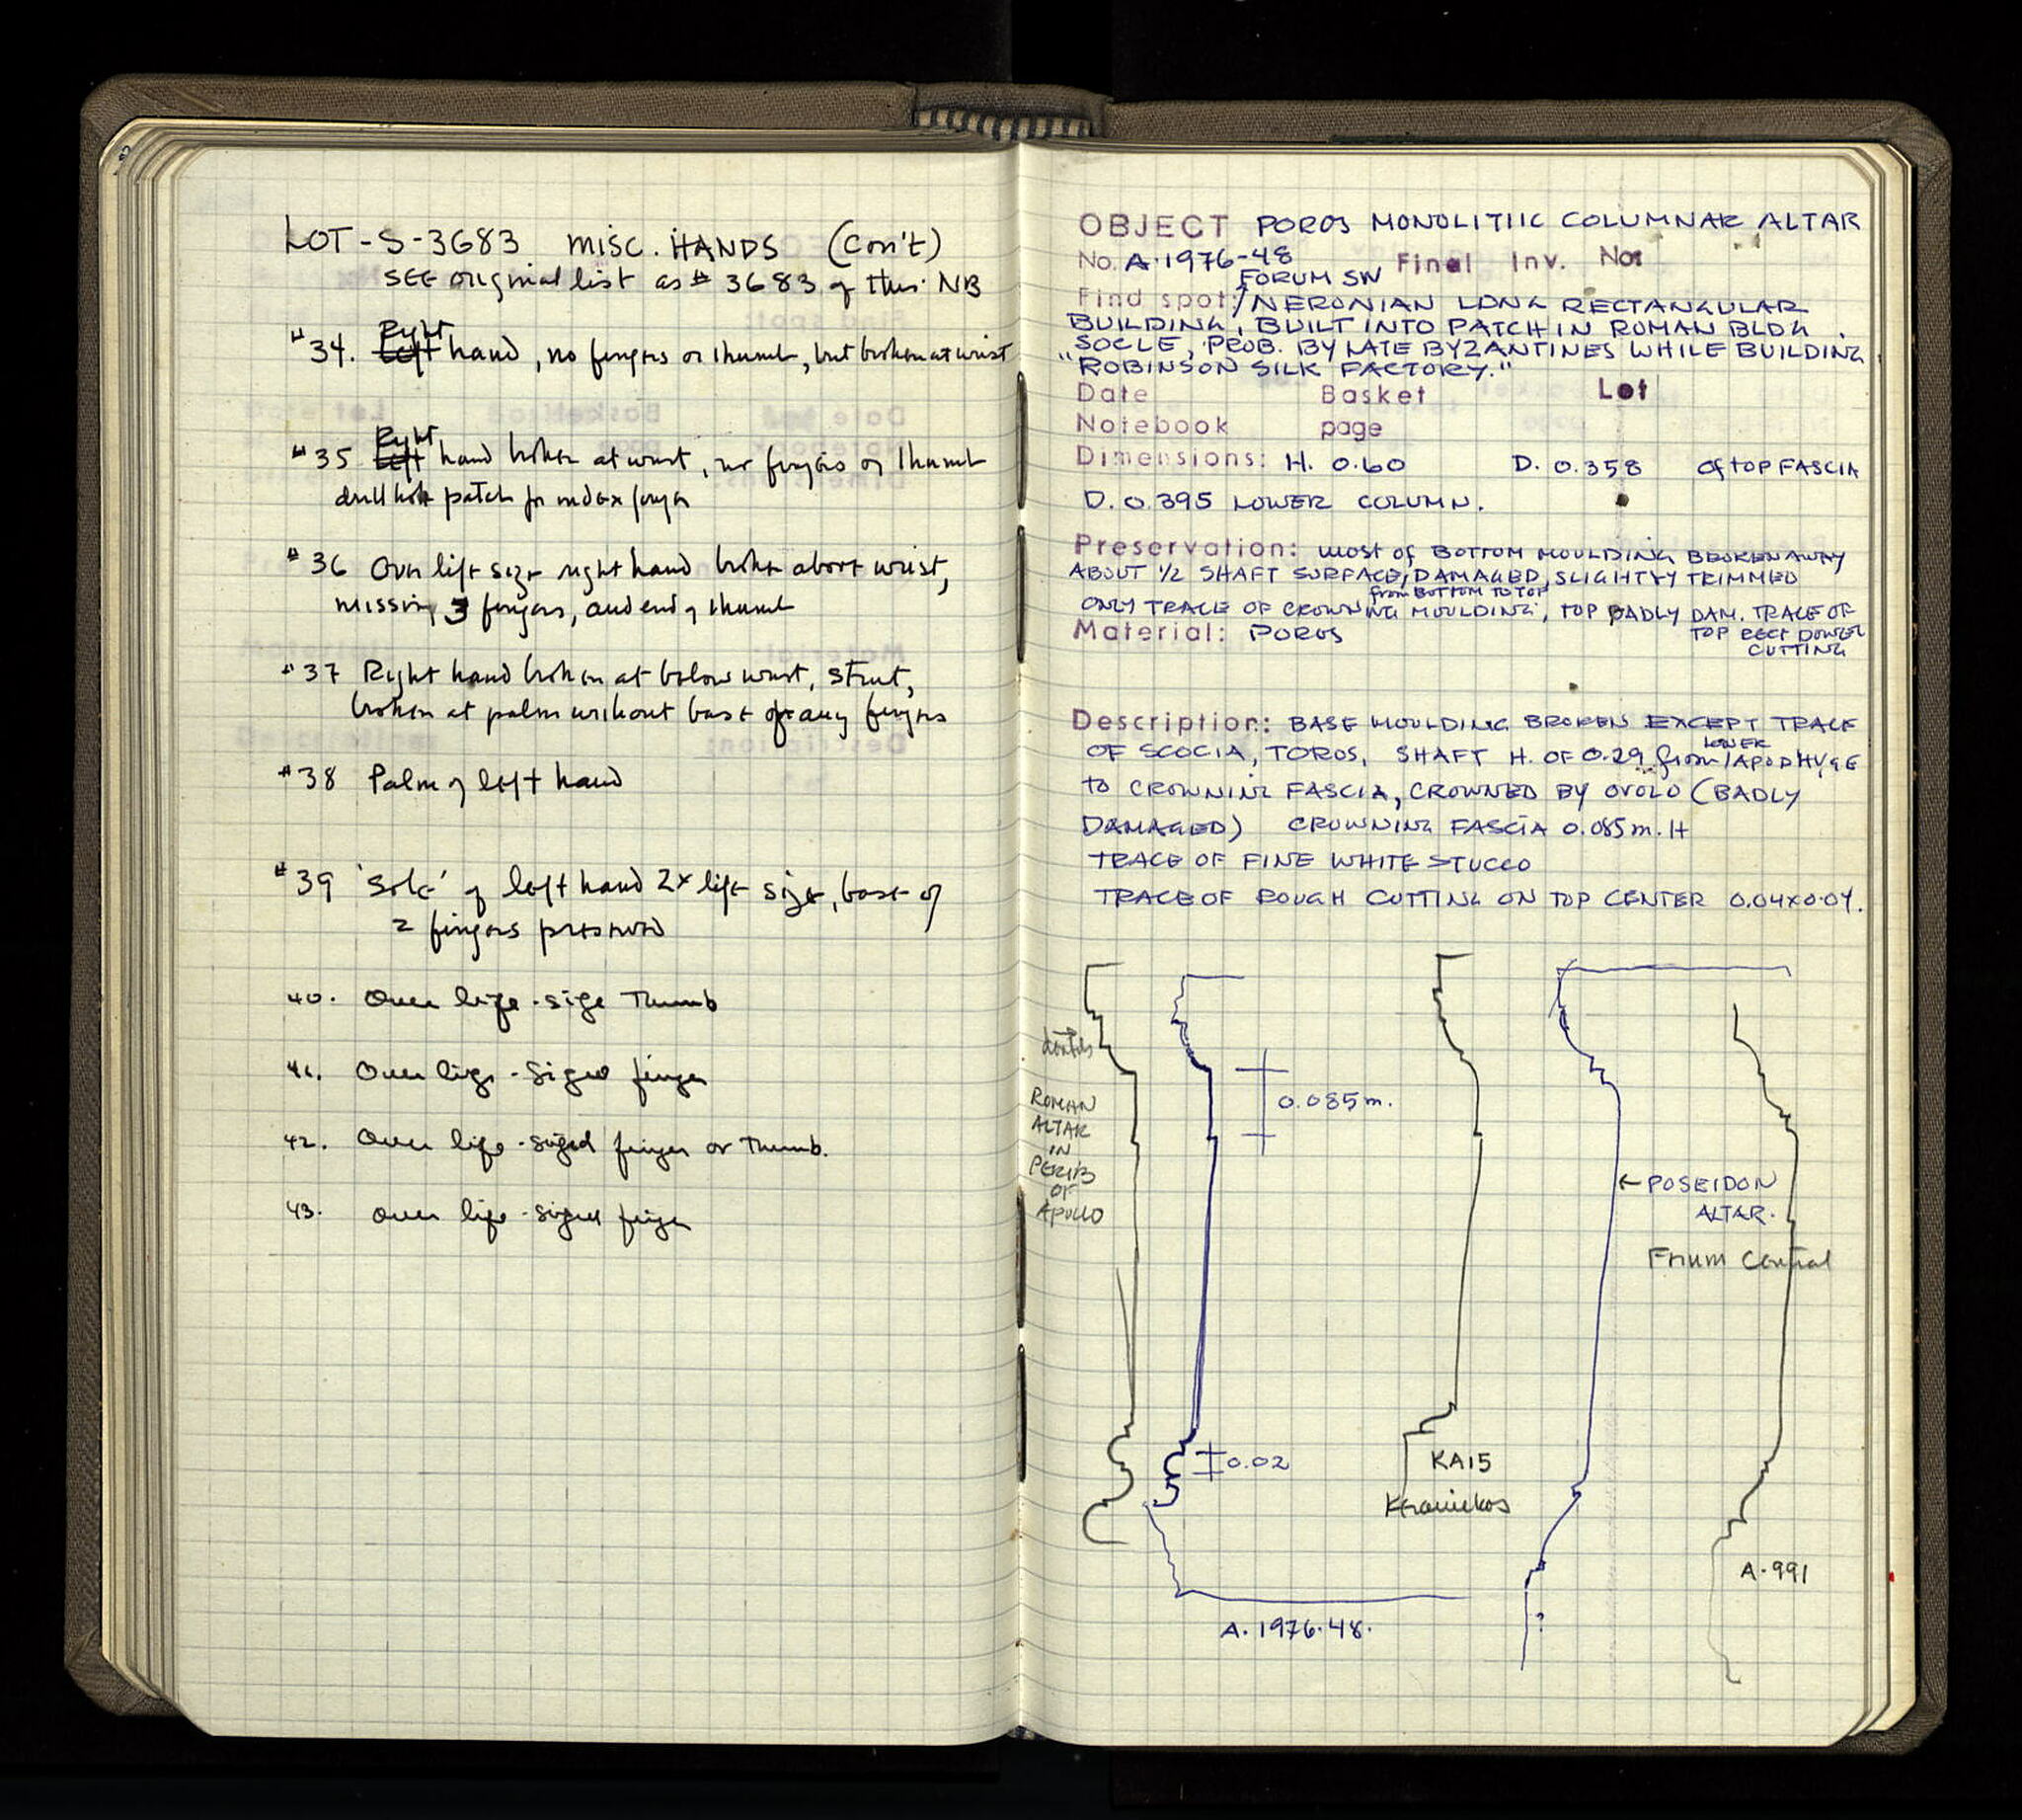 LOT-S-3683 MISC. HANDS (Con't)
SEE original list as # 3683 of this NB
Right
"34. Left hand, no fingers or thumb, but broken at wrist
Right
"35 Left hand broken at wrist, no fingers or thumb
drill hole patch for index finger
# 36 Over life size right hand broken above wrist,
missing 3 fingers, and end of thumb
"37 Right hand broken at below wrist, strut,
broken at palm without base of any fingers
#38 Palm of left hand
#39 'Sole' of left hand 2x life size, base of
2 fingers preserved
40. Over life-size Thumb
41. Over life-sized finger
42. Over life-sized finger or Thumb.
43. over life-sized finger
OBJECT POROS MONOLITIIC COLUMNAR ALTAR
No. A.1976-48 Final Inv. No:
FORUM SW
Find spot: /NERONIAN LONG RECTANGULAR
BUILDING, BUILT INTO PATCH IN ROMAN BLDG.
SOCLE, PROB. BY LATE BYZANTINES WHILE BUILDING
"ROBINSON SILK FACTORY."
Date Basket Lot
Notebook page
Dimensions: H. 0.60 D. 0.358 of TOP FASCIA
D. 0.395 LOWER COLUMN.
Preservation: MOST of BOTTOM MOULDING BROKEN AWAY
ABOUT 1/2 SHAFT SURFACE, DAMAGED, SLIGHTLY TRIMMED
from BOTTOM TO TOP
ONLY TRACE OF CROWNING MOULDING, TOP BADLY DAM. TRACE OF
TOP RECT DOWEL
CUTTING
Material: POROS
Description: BASE MOULDING BROKEN EXCEPT TRACE
OF SCOCIA, TOROS, SHAFT H. OF 0.29 from / LOWER APOPHYGE
to CROWNING FASCIA, CROWNED BY OVOLO (BADLY
DAMAGED) CROWNING FASCIA 0.085 m. H
TRACE OF FINE WHITE STUCCO
TRACE OF ROUGH CUTTING ON TOP CENTER 0.04 x 0.04.
dentils
ROMAN
ALTAR
IN
PERIB
OF
APOLLO
0.085 m.
0.02
A. 1976.48.
KA15
←POSEIDON
ALTAR.
?
Forum Central
A-991